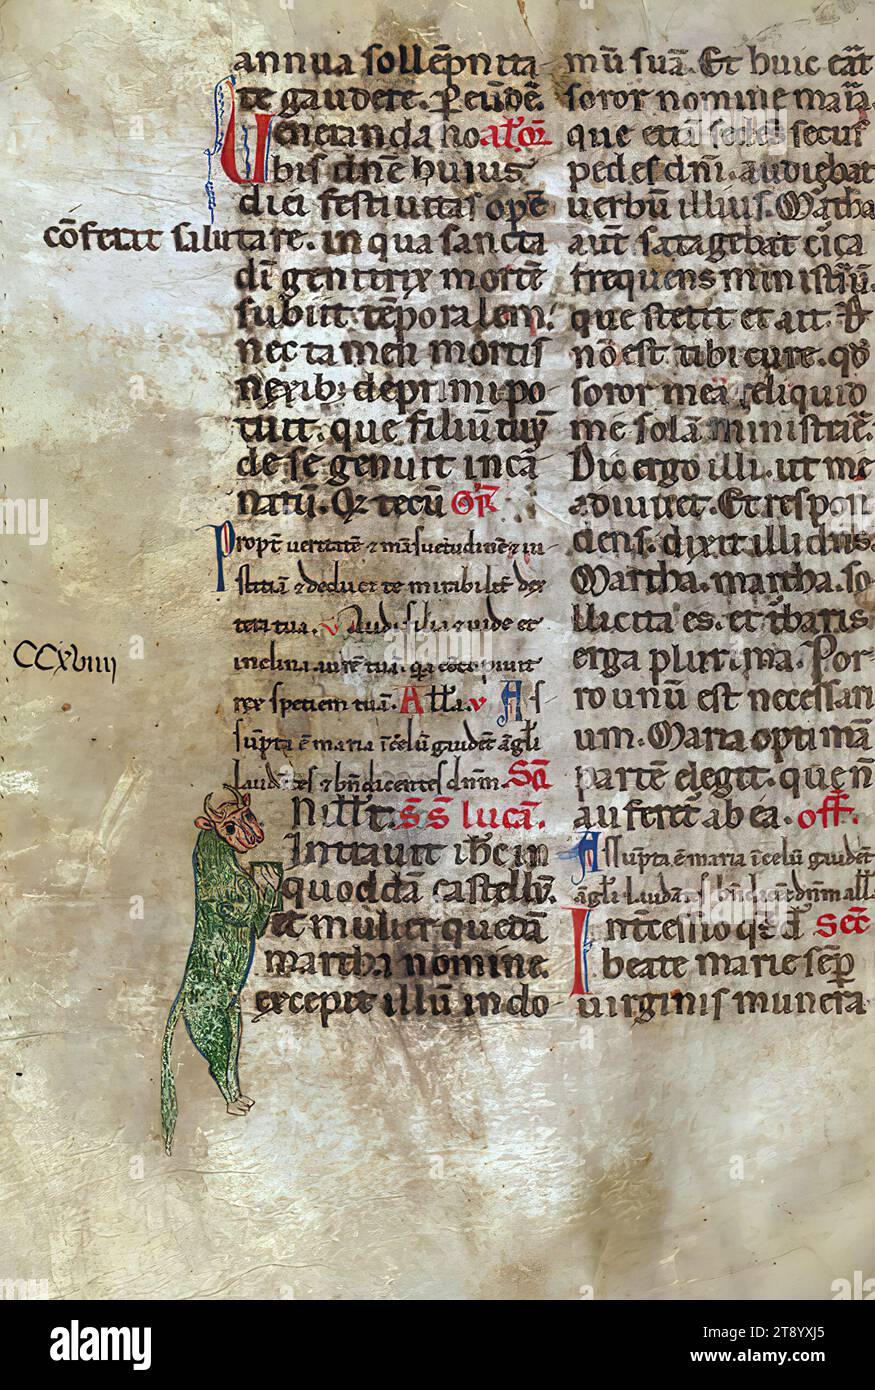 annua sollēpnita
te gaudere. P eūdē.
Ueneranda no al'. or̄.
bis dn̄e huius
diei festiuitas opē
cōferit salutare. in qua sancta
dī genitrix mortē
subiit tēporalem.
nec tamen mortis
nexib; deprimi po
tuit. que filiūm tuū
de se genuit incā
natū. Qz tecū Or̄.
Propt̄ ueritatē & māsuetudinē & iu
stitiā & deducet te mirabilit̄ dex
tera tua. V Audi filia & uide et
inclina aurē tuā. qa cōcupiuit
rex speciem tuā. All'a. V As
sūpta ē maria ī celū gaudēt āgl'i
laudātes & bn̄dicentes dn̄m. Sc̄d
N ill' t. S̄S̄ lucā.
Intrauit ih̄c in
quoddā castellū.
et mulier quedā
martha nomine.
excepit illū in do
CCXVIIII
mū suā. Et huic erāt
soror nomine maria.
que etiā sedēs secus
pedes dn̄i. audiebat
uerbū illius. Martha
aūt satagebat circa
frequens ministiū.
que stetit et ait. D
nō est tibi cure. qd̄
soror meā reliquid
me solā ministrāe.
Dic ergo illi. ut me
adiuuet. Et respon
dens. dixit illi dn̄s.
Martha. martha. so
llicita es. et t̄baris
erga plurima. Por
ro unū est necessari
um. Maria optimā
partē elegit. que n̄
auferet̄ ab ea. off̄.
Assūpta ē maria ī celū gaudēt
āgl'i laudātes bn̄dicāt dn̄m all'a
Intcessio qs̄ d̄ Sec̄
beate marie sēp
uirginis munera
alamy
Image ID: 2T8YXJ5
www.alamy.com